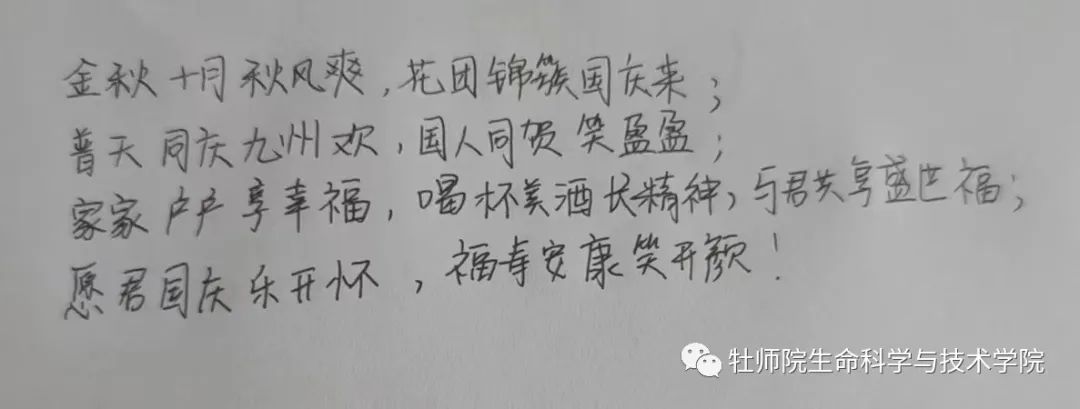 金秋十月秋风爽,花团锦簇国庆来;
普天同庆九州欢,国人同贺笑盈盈;
家家户户享幸福,喝杯美酒长精神,与君共享盛世福;
愿君国庆乐开怀,福寿安康笑开颜!
牡师院生命科学与技术学院